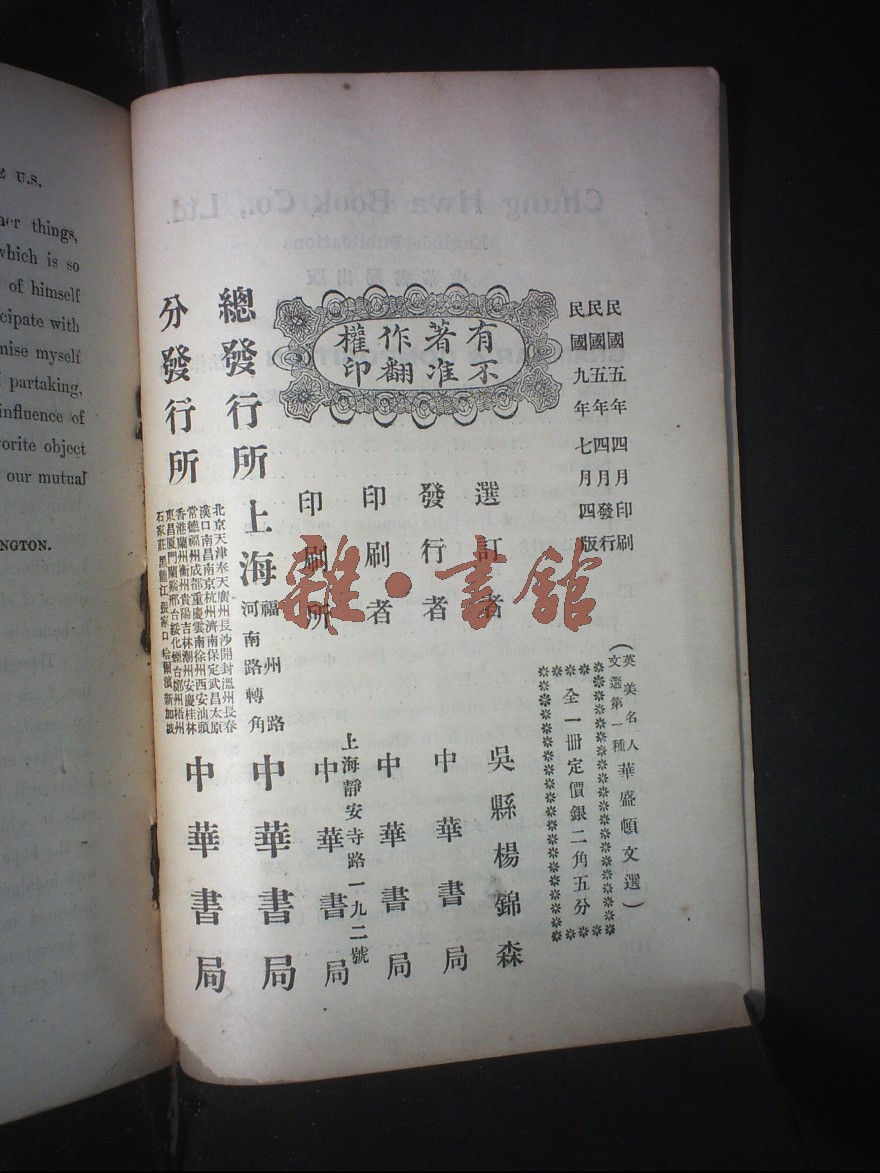 E U.S.
her things,
which is so
of himself
cipate with
mise myself
f partaking,
influence of
vorite object
our mutual
NGTON.
民國五年四月印刷
民國五年四月發行
民國九年七月四版
(英美名人文選第一種 華盛頓文選)
全一冊定價銀二角五分
有不著准作翻權印
選訂者 吳縣楊錦森
發行者 中華書局
印刷者 中華書局
上海靜安寺路一九二號
印刷所 中華書局
總發行所 上海 福州路河南路轉角 中華書局
分發行所
北京天津奉天廣州長沙開封溫州長春
漢口南昌南京杭州濟南保定武昌太原
常德福州成都重慶雲南徐州西安汕頭
香港蘭州衡州貴陽吉林潮州安慶桂林
東昌廈門蘭谿邢台綏化煙台鄭州梧州
石家莊黑龍江張家口哈爾濱新加坡
中華書局
雜·書館
Chung Hwa Book Co., Ltd.
English Publications